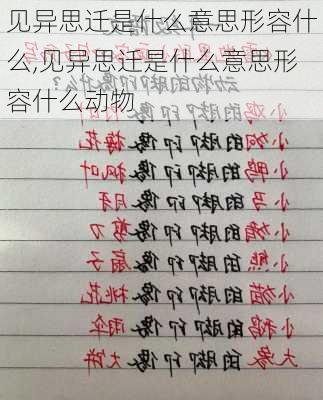 见异思迁是什么意思形容什
么,见异思迁是什么意思形
容什么动物
动物的脚印像什么?
小鸡的脚印像
小狗的脚印像梅花
小鸭的脚印像枫叶
小马的脚印像月牙
小猪的脚印像剪刀
小熊的脚印像扇子
小猫的脚印像桃花
的脚印像雨伞
大象的脚印像大饼